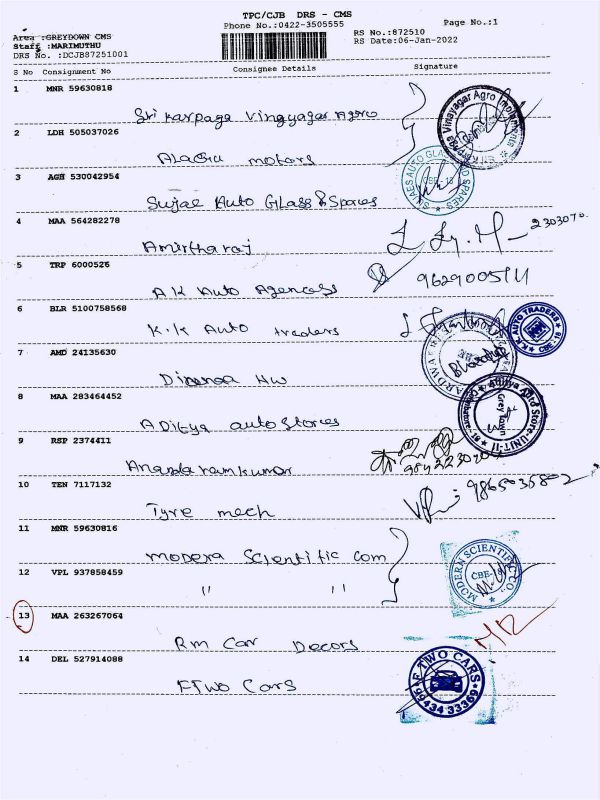 TPC/CJB DRS - CMS
Phone No.:0422-3505555
Page No.:1
Area :GREYDOWN CMS
Staff :MARIMUTHU
DRS No. :DCJB87251001
RS No.:872510
RS Date:06-Jan-2022
S No Consignment No Consignee Details Signature
1 MNR 59630818
Sri Karpaga Vinayagar Agro
2 LDH 505037026
Alagu motors
3 AGH 530042954
Sujae Auto Glass & Spares
4 MAA 564282278
Amirtharaj
5 TRP 6000526
A K Auto Agencess
6 BLR 5100758568
K.K Auto traders
7 AMD 24135630
HW
8 MAA 283464452
Aditya auto stores
9 RSP 2374411
Anandaramkumar
10 TEN 7117132
Tyre mech
9865035802
11 MNR 59630816
modern Scientific com
12 VPL 937858459
" "
MODERN SCIENTIFIC CO.
CBE-18
13 MAA 263267064
Rm Car Decors
14 DEL 527914088
FTwo Cars
F TWO CARS
99434 33369